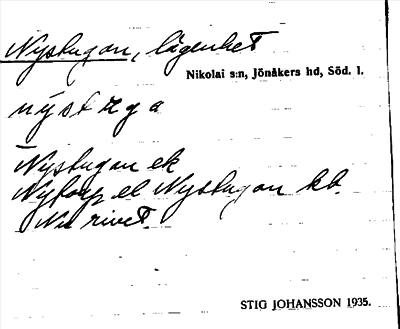 Nystugan, lägenhet
Nikolai s:n, Jönåkers hd, Söd. l.
nýstzga
Nystugan ek
Nytorp el Nystugan kb.
Nu rivet.
STIG JOHANSSON 1935.